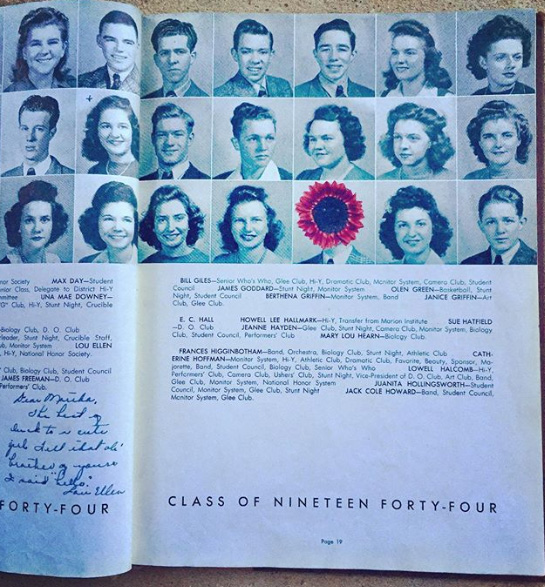 nor Society MAX DAY—Student
nior Class, Delegate to District Hi-Y
mmittee UNA MAE DOWNEY—
D." Club, Hi-Y, Stunt Night, Crucible
Biology Club, D. O. Club
rleader, Stunt Night, Crucible Staff,
ub, Monitor System LOU ELLEN
, Hi-Y, National Honor Society.
Club, Biology Club, Student Council
JAMES FREEMAN—D. O. Club
Performers' Club.
Dear
The best of
luck to a cute
girl. Tell that ol'
brother of yours
I said "hello."
Lou Ellen
FORTY-FOUR
BILL GILES—Senior Who's Who, Glee Club, Hi-Y, Dramatic Club, Monitor System, Camera Club, Student
Council JAMES GODDARD—Stunt Night, Monitor System OLEN GREEN—Basketball, Stunt
Night, Student Council BERTHENA GRIFFIN—Monitor System, Band JANICE GRIFFIN—Art
Club, Glee Club.
E. C. HALL HOWELL LEE HALLMARK—Hi-Y, Transfer from Marion Institute SUE HATFIELD
—D. O. Club JEANNE HAYDEN—Glee Club, Stunt Night, Camera Club, Monitor System, Biology
Club, Student Council, Performers' Club MARY LOU HEARN—Biology Club.
FRANCES HIGGINBOTHAM—Band, Orchestra, Biology Club, Stunt Night, Athletic Club CATH-
ERINE HOFFMAN—Monitor System, Hi-Y, Athletic Club, Dramatic Club, Favorite, Beauty, Sponsor, Ma-
jorette, Band, Student Council, Biology Club, Senior Who's Who LOWELL HALCOMB—Hi-Y,
Performers' Club, Camera Club, Ushers' Club, Stunt Night, Vice-President of D. O. Club, Art Club, Band,
Glee Club, Monitor System, National Honor System JUANITA HOLLINGSWORTH—Student
Council, Monitor System, Glee Club, Stunt Night JACK COLE HOWARD—Band, Student Council,
Monitor System, Glee Club.
CLASS OF NINETEEN FORTY-FOUR
Page 19